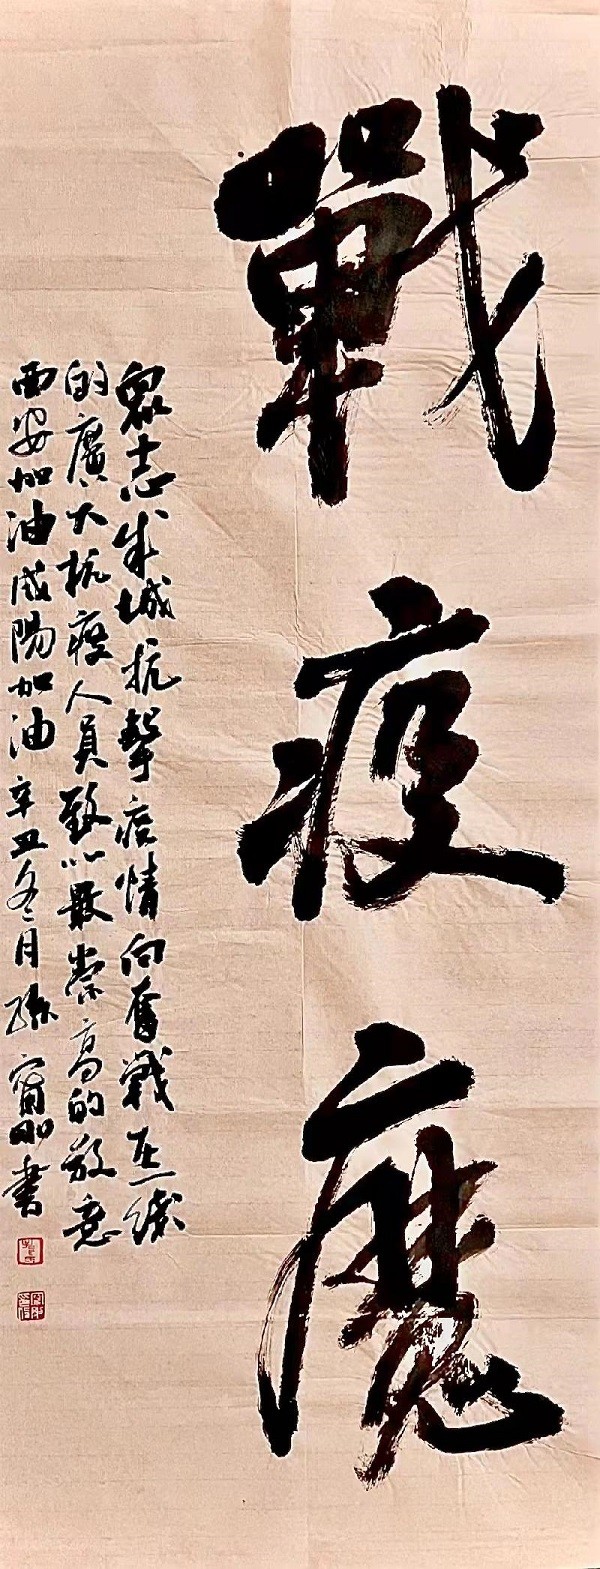 戰疫魔
眾志成城抗擊疫情向奮戰在一綫
的廣大抗疫人員致以最崇高的敬意
西安加油咸陽加油 辛丑冬月 孫 書